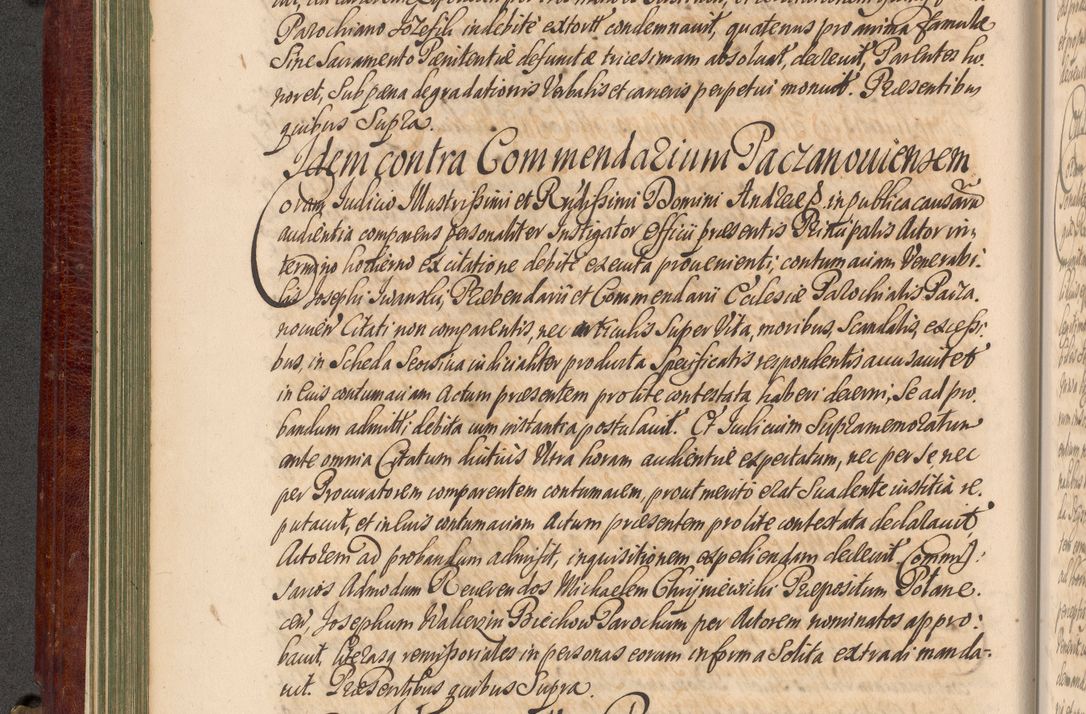 Parochiano Jozefik indebite extorti condemnavit, quatenus pro anima famulæ
Sine Sacramento Pœnitentiæ defunctæ tricesimam absolvat, decrevit, Parentes ho-
noret, Sub pœna degradationis Verbalis et carceris perpetui monuit. Præsentibus
quibus Supra.
Idem contra Commendarium Paczanoviensem
Coram Judicio Illustrissimi et Rndissimi Domini Andreæ E. in publica causarum
audientia comparens personaliter Instigator officii præsentis Principalis Actor in
termino hodierno ex citatione debite executa provenienti, contumaciam Venerabi-
lis Josephi Iwanski, Præbendarii et Commendarii Ecclesiæ Parochialis Pacza-
novien Citati non comparentis, nec articulis Super Vita, moribus, Scandalis, excessi-
bus, in Scheda Seorsiva judicialiter producta Specificatis respondentis accusavit et
in eius contumaciam Actum præsentem pro lite contestata haberi decerni, Se ad pro-
bandum admitti debita cum instantia postulavit. Et Judicium Supramemoratum
ante omnia Citatum diutius Ultra horam audientiæ expectatum, nec per Se, nec
per Procuratorem comparentem contumacem, prout merito erat Suadente iustitia re-
putavit, et in eius contumaciam Actum præsentem pro lite contestata declaravit
Actorem ad probandum admisit, inquisitionem expediendam decrevit Commis-
sarios Admodum Reverendos Michaelem Chyjniewicki Præpositum Potane-
cen, Josephum Walierzin Biechow Parochum per Actorem nominatos appro-
bavit, literasq remissoriales in personas eorum in forma Solita extradi manda-
vit. Præsentibus quibus Supra.